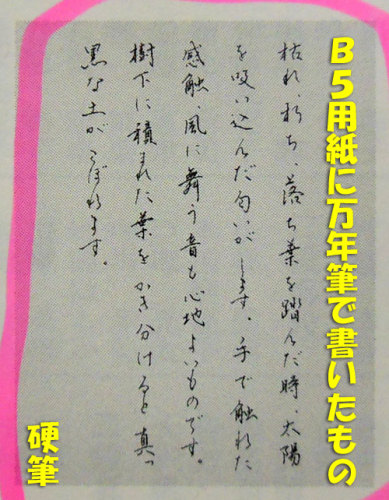 B5用紙に万年筆で書いたもの
枯れ、朽ち、落ち葉を踏んだ時、太陽
を吸い込んだ匂いがします。手で触れた
感触、風に舞う音も心地よいものです。
樹下に積まれた葉をかき分けると真っ
黒な土がこぼれます。
硬筆